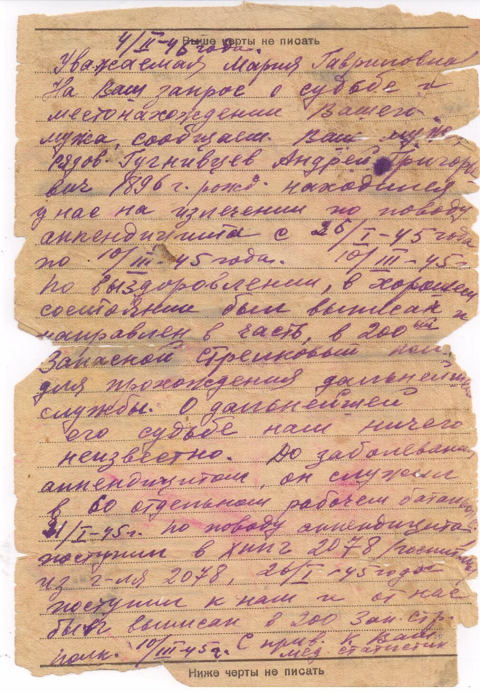 Выше черты не писать
4/II-46 года.
Уважаемая Мария Гавриловна
На Ваш запрос о судьбе и
местонахождении Вашего
мужа, сообщаем Ваш муж,
рядов. Гугнивцев Андрей Григорь
вич 1896 г. рожд. находился
у нас на излечении по поводу
аппендицита с 26/I-45 года
по 10/III-45 года. 10/III-45 г.
по выздоровлении, в хорошем
состоянии был выписан и
направлен в часть, в 200ый
Запасной стрелковый полк,
для прохождения дальнейшей
службы. О дальнейшей
его судьбе нам ничего
неизвестно. До заболевания
аппендицитом, он служил
в 60 отдельном рабочем батальо
21/I-45 г. по поводу аппендицита
поступил в ХППГ 2078 /госпиталь
из г-ля 2078, 26/I-45 года
поступил к нам и от нас
был выписан в 200 Зап стр.
полк. 10/III-45 г. С прив. к Вам
мед статистик
Ниже черты не писать